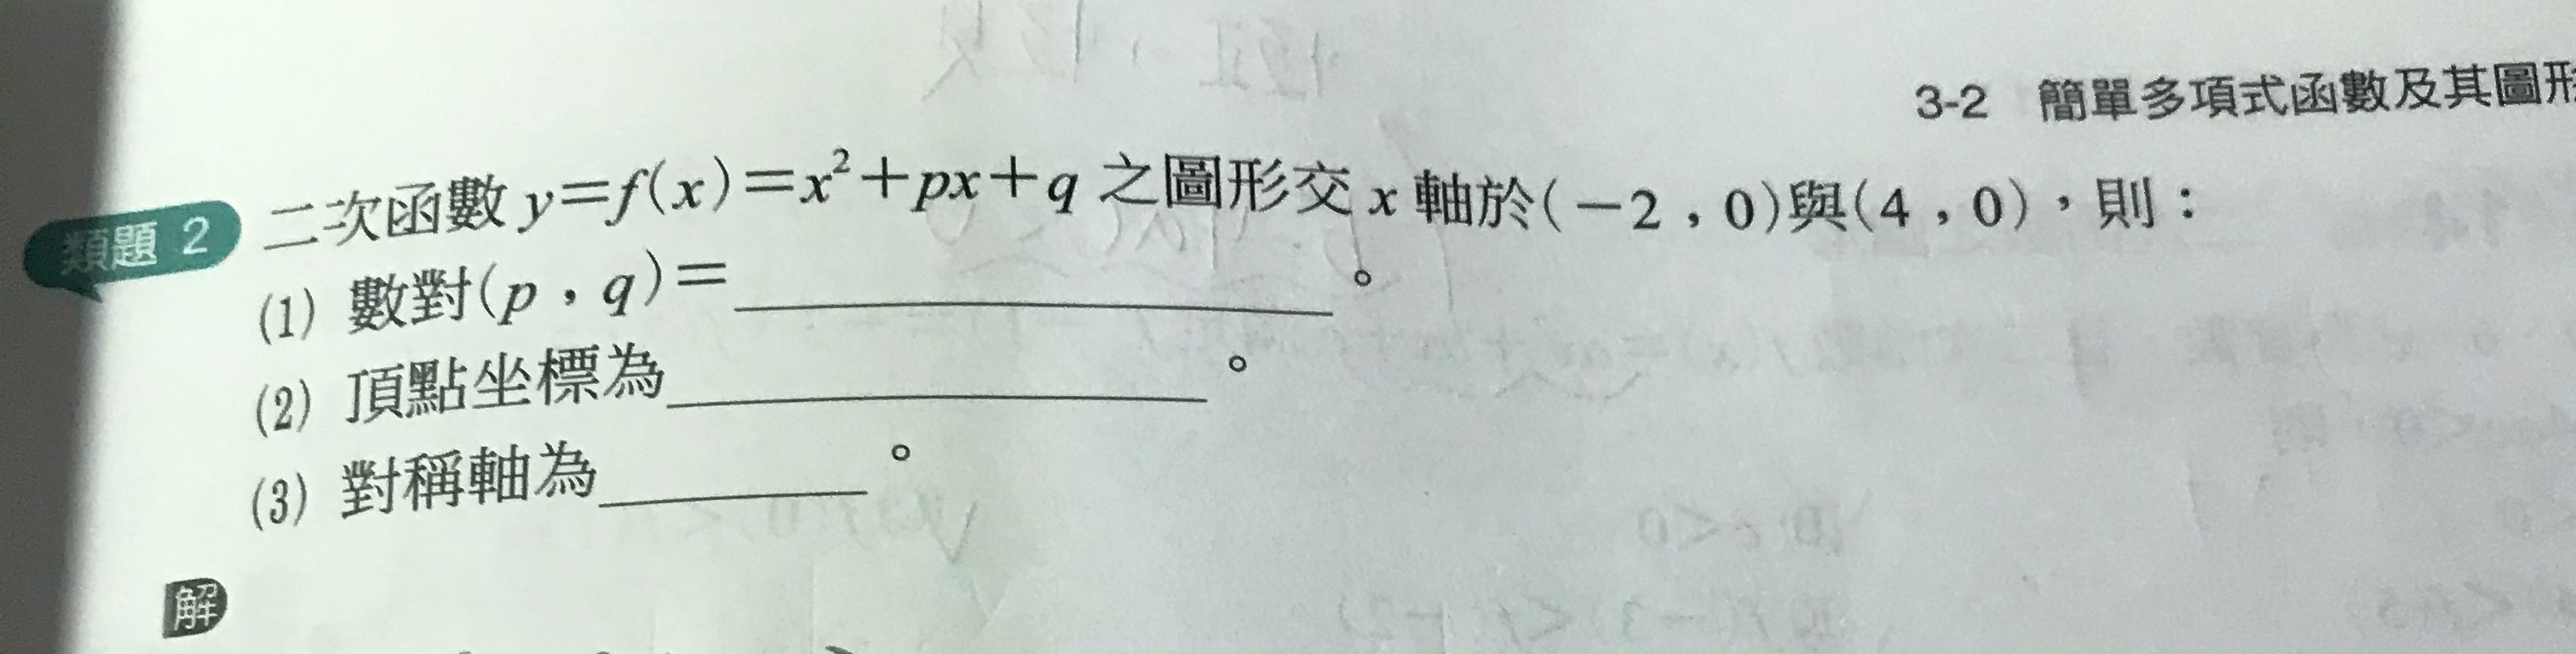 3-2 簡單多項式函數及其圖形
類題 2 二次函數 y=f(x)=x²+px+q 之圖形交 x 軸於(-2,0)與(4,0),則:
(1) 數對(p,q)=____________。
(2) 頂點坐標為____________。
(3) 對稱軸為________。
解